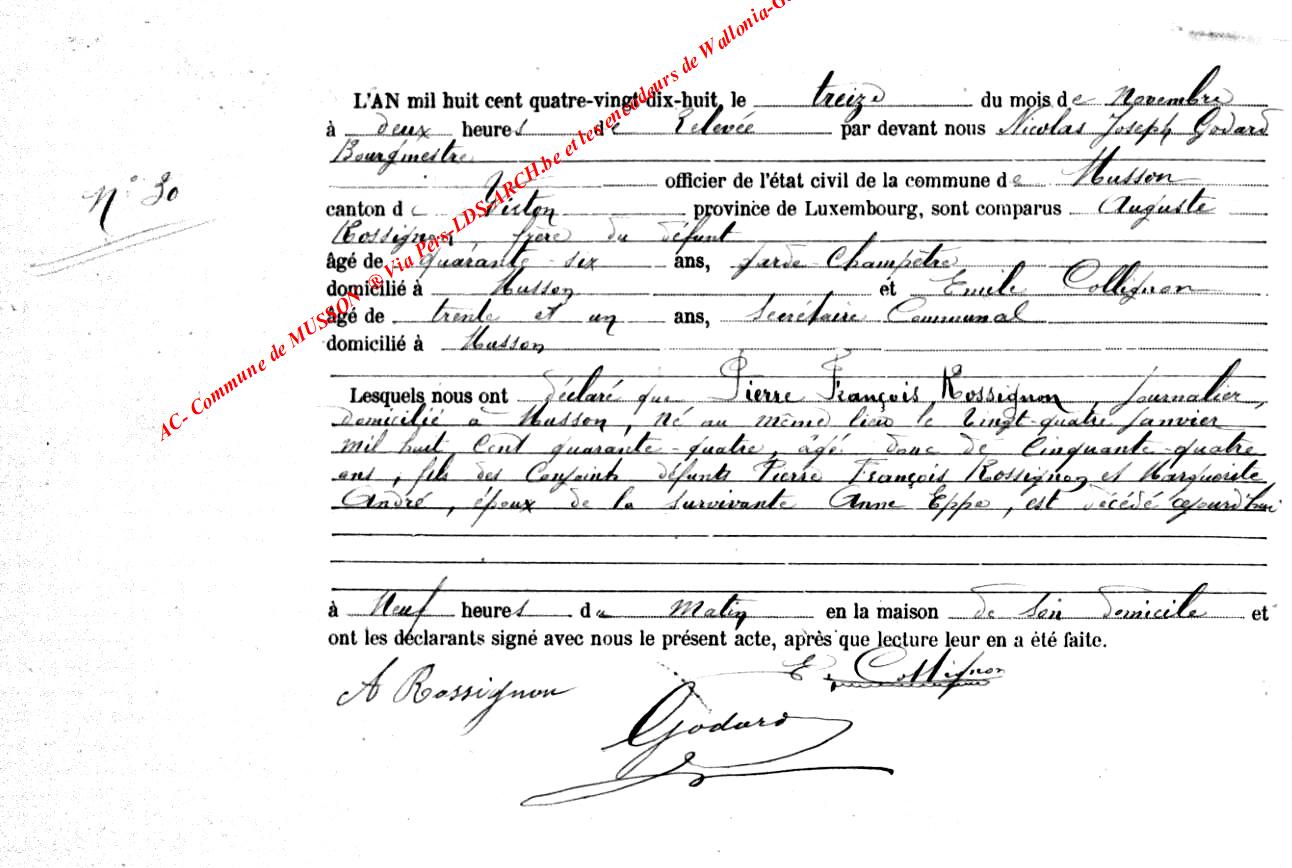 AC- Commune de MUSSON ® Via Pers-LDS-ARCH.be et les encodeurs de Wallonia-G
N° 30
L'AN mil huit cent quatre-vingt-dix-huit, le treize du mois de Novembre
à deux heures de Relevée par devant nous Nicolas Joseph Godard
Bourgmestre
officier de l'état civil de la commune de Musson
canton de Virton province de Luxembourg, sont comparus Auguste
Rossignon, frère du défunt
âgé de quarante-six ans, garde-Champêtre
domicilié à Musson et Emile Collignon
âgé de trente et un ans, Secrétaire Communal
domicilié à Musson
Lesquels nous ont déclaré que Pierre François Rossignon, journalier,
domicilié à Musson, né au même lieu le vingt-quatre janvier
mil huit cent quarante-quatre, âgé donc de cinquante-quatre
ans, fils des Conjoints défunts Pierre François Rossignon et Marguerite
André, époux de la survivante Anne Eppe, est décédé cejourd'hui
à Neuf heures du Matin en la maison de son domicile et
ont les déclarants signé avec nous le présent acte, après que lecture leur en a été faite.
E. Collignon
A Rossignon
Godard